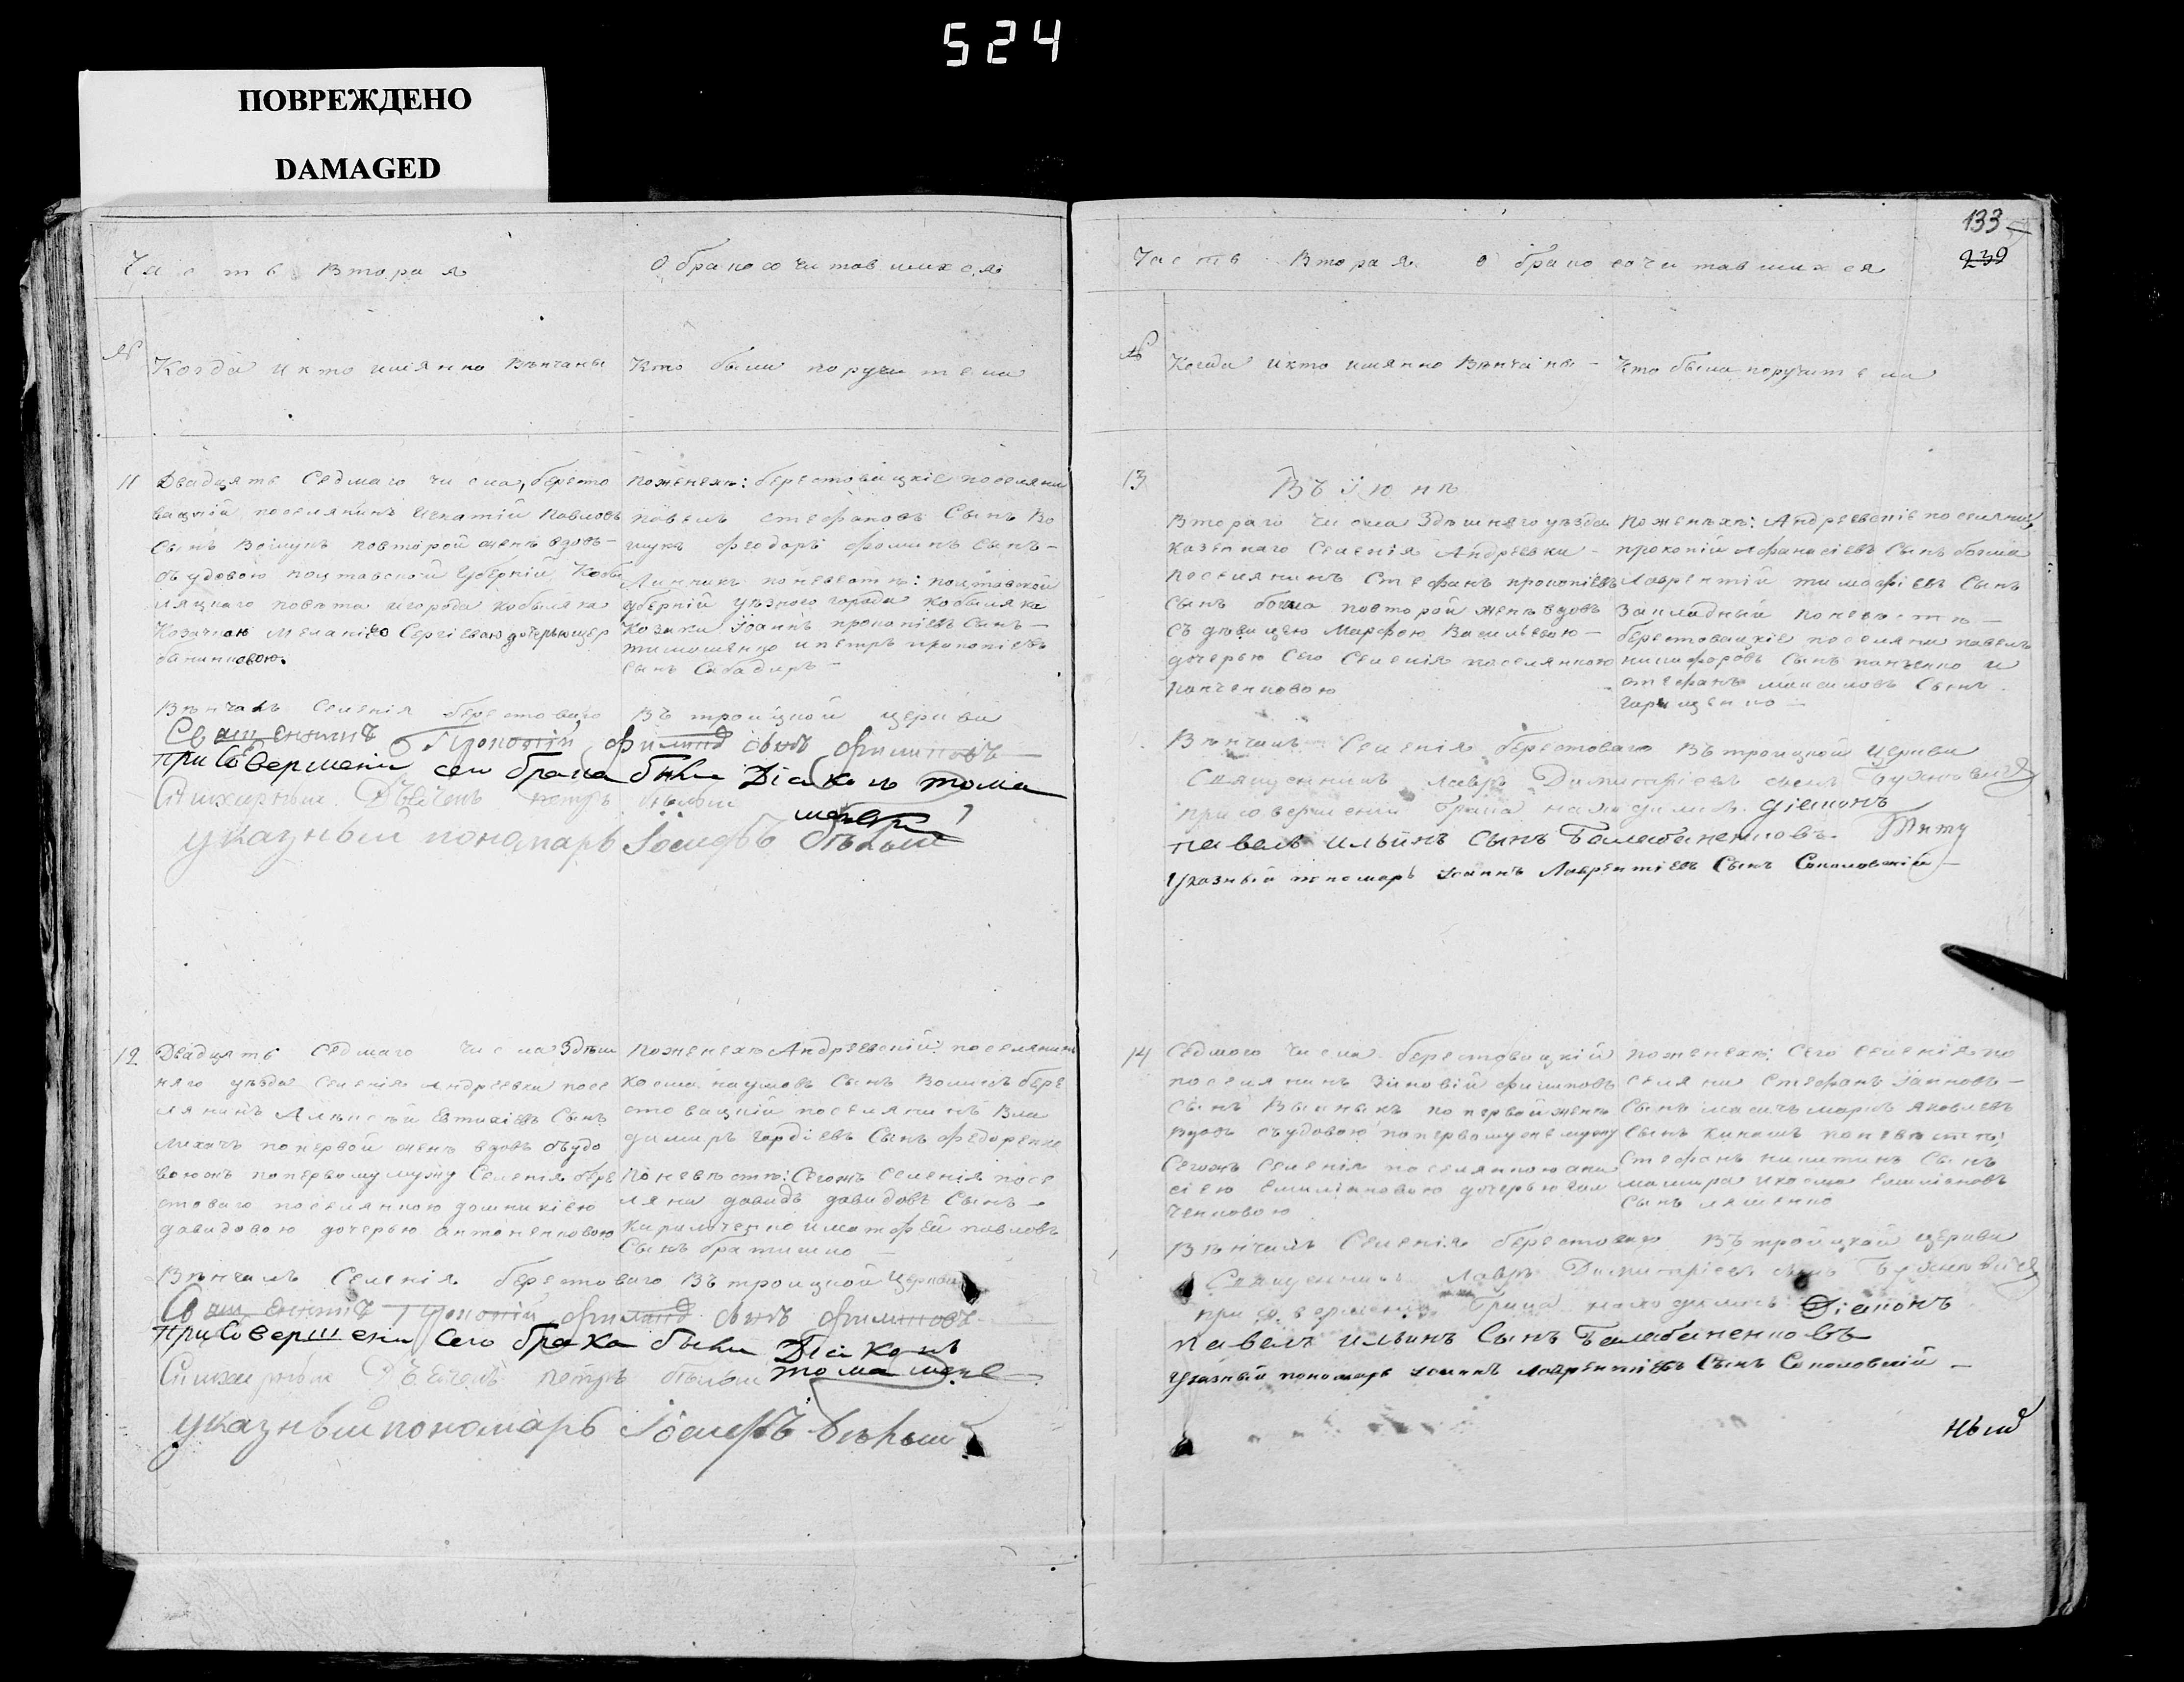 524
ПОВРЕЖДЕНО
DAMAGED
Часть Вторая
О бракосочитавшихся
№
Когда и кто имянно Вѣнчаны
Кто были поручители
11
Двадцять Седмаго числа, бересто
вацкій поселянинъ Игнатій Павловъ
Сынъ повторой женѣ вдовъ-
съ удовою полтавской Губерніи, Кобы
ляцкаго повѣта игорода кобыляка
Козачкою Меланіею Сергіевою дочерью щер
баниновою.
поженехѣ: берестовацкіе поселяни
павелъ стефановъ Сынъ Во
феодоръ фоминъ сынъ-
Линникъ поневестѣ: полтавской
губерній уѣзного города кобыляка
Козаки Іоаннъ прокопіевъ Сынъ-
тимошенко ипетръ прокопіевъ
сынъ Сабадиръ-
Вѣнчалъ Селенія берестоваго Въ троицкой церкви
Священникъ Прокопій сынъ
при Совершени сего брака были Діаконъ тома
Стихарный Дьячекъ петръ бѣлый
указный пономарь Іосифъ бѣлый
12
Двадцять седмаго числа Здѣш
няго уѣзда Селенія Андреевки посе
лянинъ Алексѣй Евтихіевъ Сынъ
Лихачъ попервой женѣ вдовъ съудо
воюжъ попервомумужу Селенія бере
стоваго поселянкою домникіею
давидовою дочерью антоненковою
поженехѣ Андреевскій: поселянинъ
косма наумовъ Сынъ бере
стовацкій поселянинъ Вла
димиръ гордіевъ Сынъ федоренко
поневѣстѣ: Сегожъ Селенія посе
ляни давидъ давидовъ Сынъ-
Кириличенко иматфѣй павловъ
Сынъ братишко-
Вѣнчалъ Селенія берестоваго Въ троицкой Церкви
Священникъ Прокопій сынъ
при Совершени Сего брака были Діяконъ
Стихарный Дьячекъ петръ бѣлый тома
указный пономарь Іосифъ бѣлый
133
239
Часть Вторая О бракосочитавшихся
№
Когда икто имянно Вѣнчаны-
Кто были поручители
13
Въ Іюнѣ
Втораго числа Здѣшняго уѣзда
казеннаго Селенія Андреевки-
поселянинъ Стефанъ прокопіевъ
Сынъ повторой женѣ вдовъ
съ дѣвицею Марфою Васильевою-
дочерью Сего Селенія поселянкою
панченковою
поженѣхѣ: Андреевскіе поселяни
прокопій Афанасіевъ Сынъ
Лаврентій тимофіевъ Сынъ
Закладный поневѣстѣ-
берестовацкіе поселяни павелъ
никифоровъ Сынъ панченко и
стефанъ максимовъ Сынъ
Вѣнчалъ Селенія берестоваго Въ троицкой Церкви
Священникъ Лавръ Димитріевъ сынъ
при совершеніи брака находились діаконъ
павелъ ильинъ Сынъ Балабаненковъ.
Указный пономарь Іоаннъ Лаврентіевъ Сынъ Соколовскій-
14
Седмого числа берестовацкій
поселянинъ Зиновій филиповъ
сынъ попервой женѣ
вдовъ съудовою попервомужемужу
Сегожъ Селенія поселянкою
Емиліановою дочерью
ченковою
поженехѣ: Сего Селенія по
селяни Стефанъ Іанновъ-
Сынъ Яковлевъ
Сынъ поневѣстѣ:
Стефанъ никитинъ Сынъ
икосма Емиліановъ
Сынъ ляшенко
Вѣнчалъ Селенія берестоваго Въ тройцкой церкви
Священникъ Лавръ Димитріевъ сынъ
при совершеніи брака находились Діаконъ
павелъ ильинъ Сынъ Балабаненковъ
Указный пономарь Іоаннъ Лаврентіевъ Сынъ Соколовскій-
ный